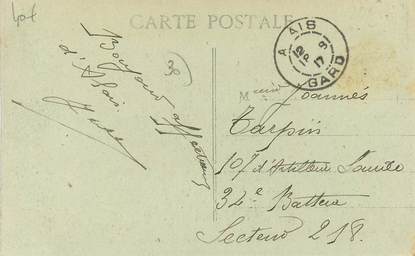 CARTE POSTALE
ALAIS
GARD
12
9
17
30
Bonjour affectueux
d'Alais
M Joannès
Tarpin
107 d'Artillerie Lourde
34e Batterie
Secteur 218.